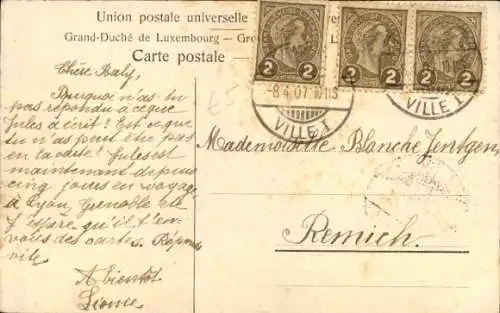 Union postale universelle
Grand-Duché de Luxembourg —
Carte postale —
2 2 2
-8.4.07
VILLE I
VILLE I
£5
Chère Baby,
Pourquoi n'as-tu
pas répondu à ce que
Jules a écrit? Est-ce que
tu n'as peut être pas
Jules est
maintenant depuis
cinq jours en voyage
à Lyon, Grenoble etc
J'espère qu'il t'en-
voies des cartes. Réponds
vite
A bientôt
Mademoiselle Blanche Jentgen,
Remich.